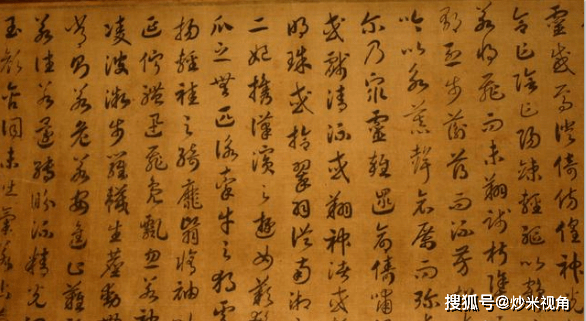 靈感焉徙倚傍徨神
合乍陰乍陽竦輕軀以鶴
若將飛而未翔踐椒塗
郁烈步蘅薄而流芳
吟以永慕聲哀厲而弥
尔乃衆靈雜遝命儔嘯
或戲清流或翔神渚或
明珠或拾翠羽從南湘
二妃攜漢濱之遊女歎
瓜之無匹詠牽牛之獨
揚輕袿之綺靡翳脩袖以
延佇體迅飛鳧飄忽若神
凌波微步羅襪生塵動
常則若危若安進止難
若往若還轉眄流精光
玉顏含詞未吐氣若
搜狐号@炒米视角